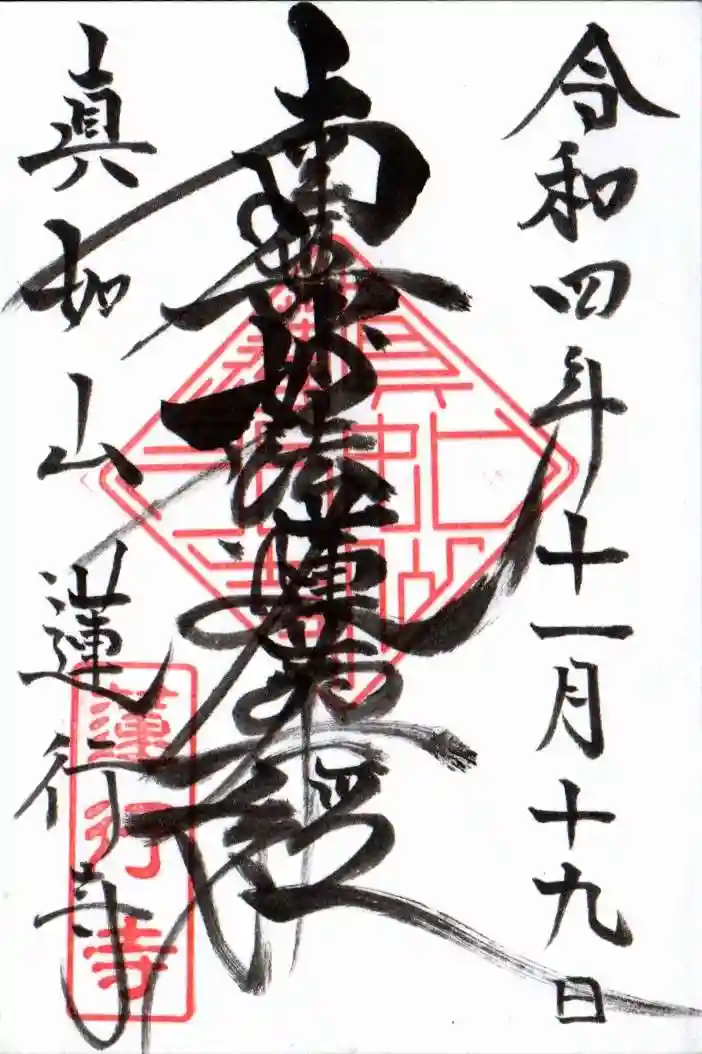 令和四年十一月十九日
南無妙法蓮華経
眞如山蓮行寺
蓮行寺